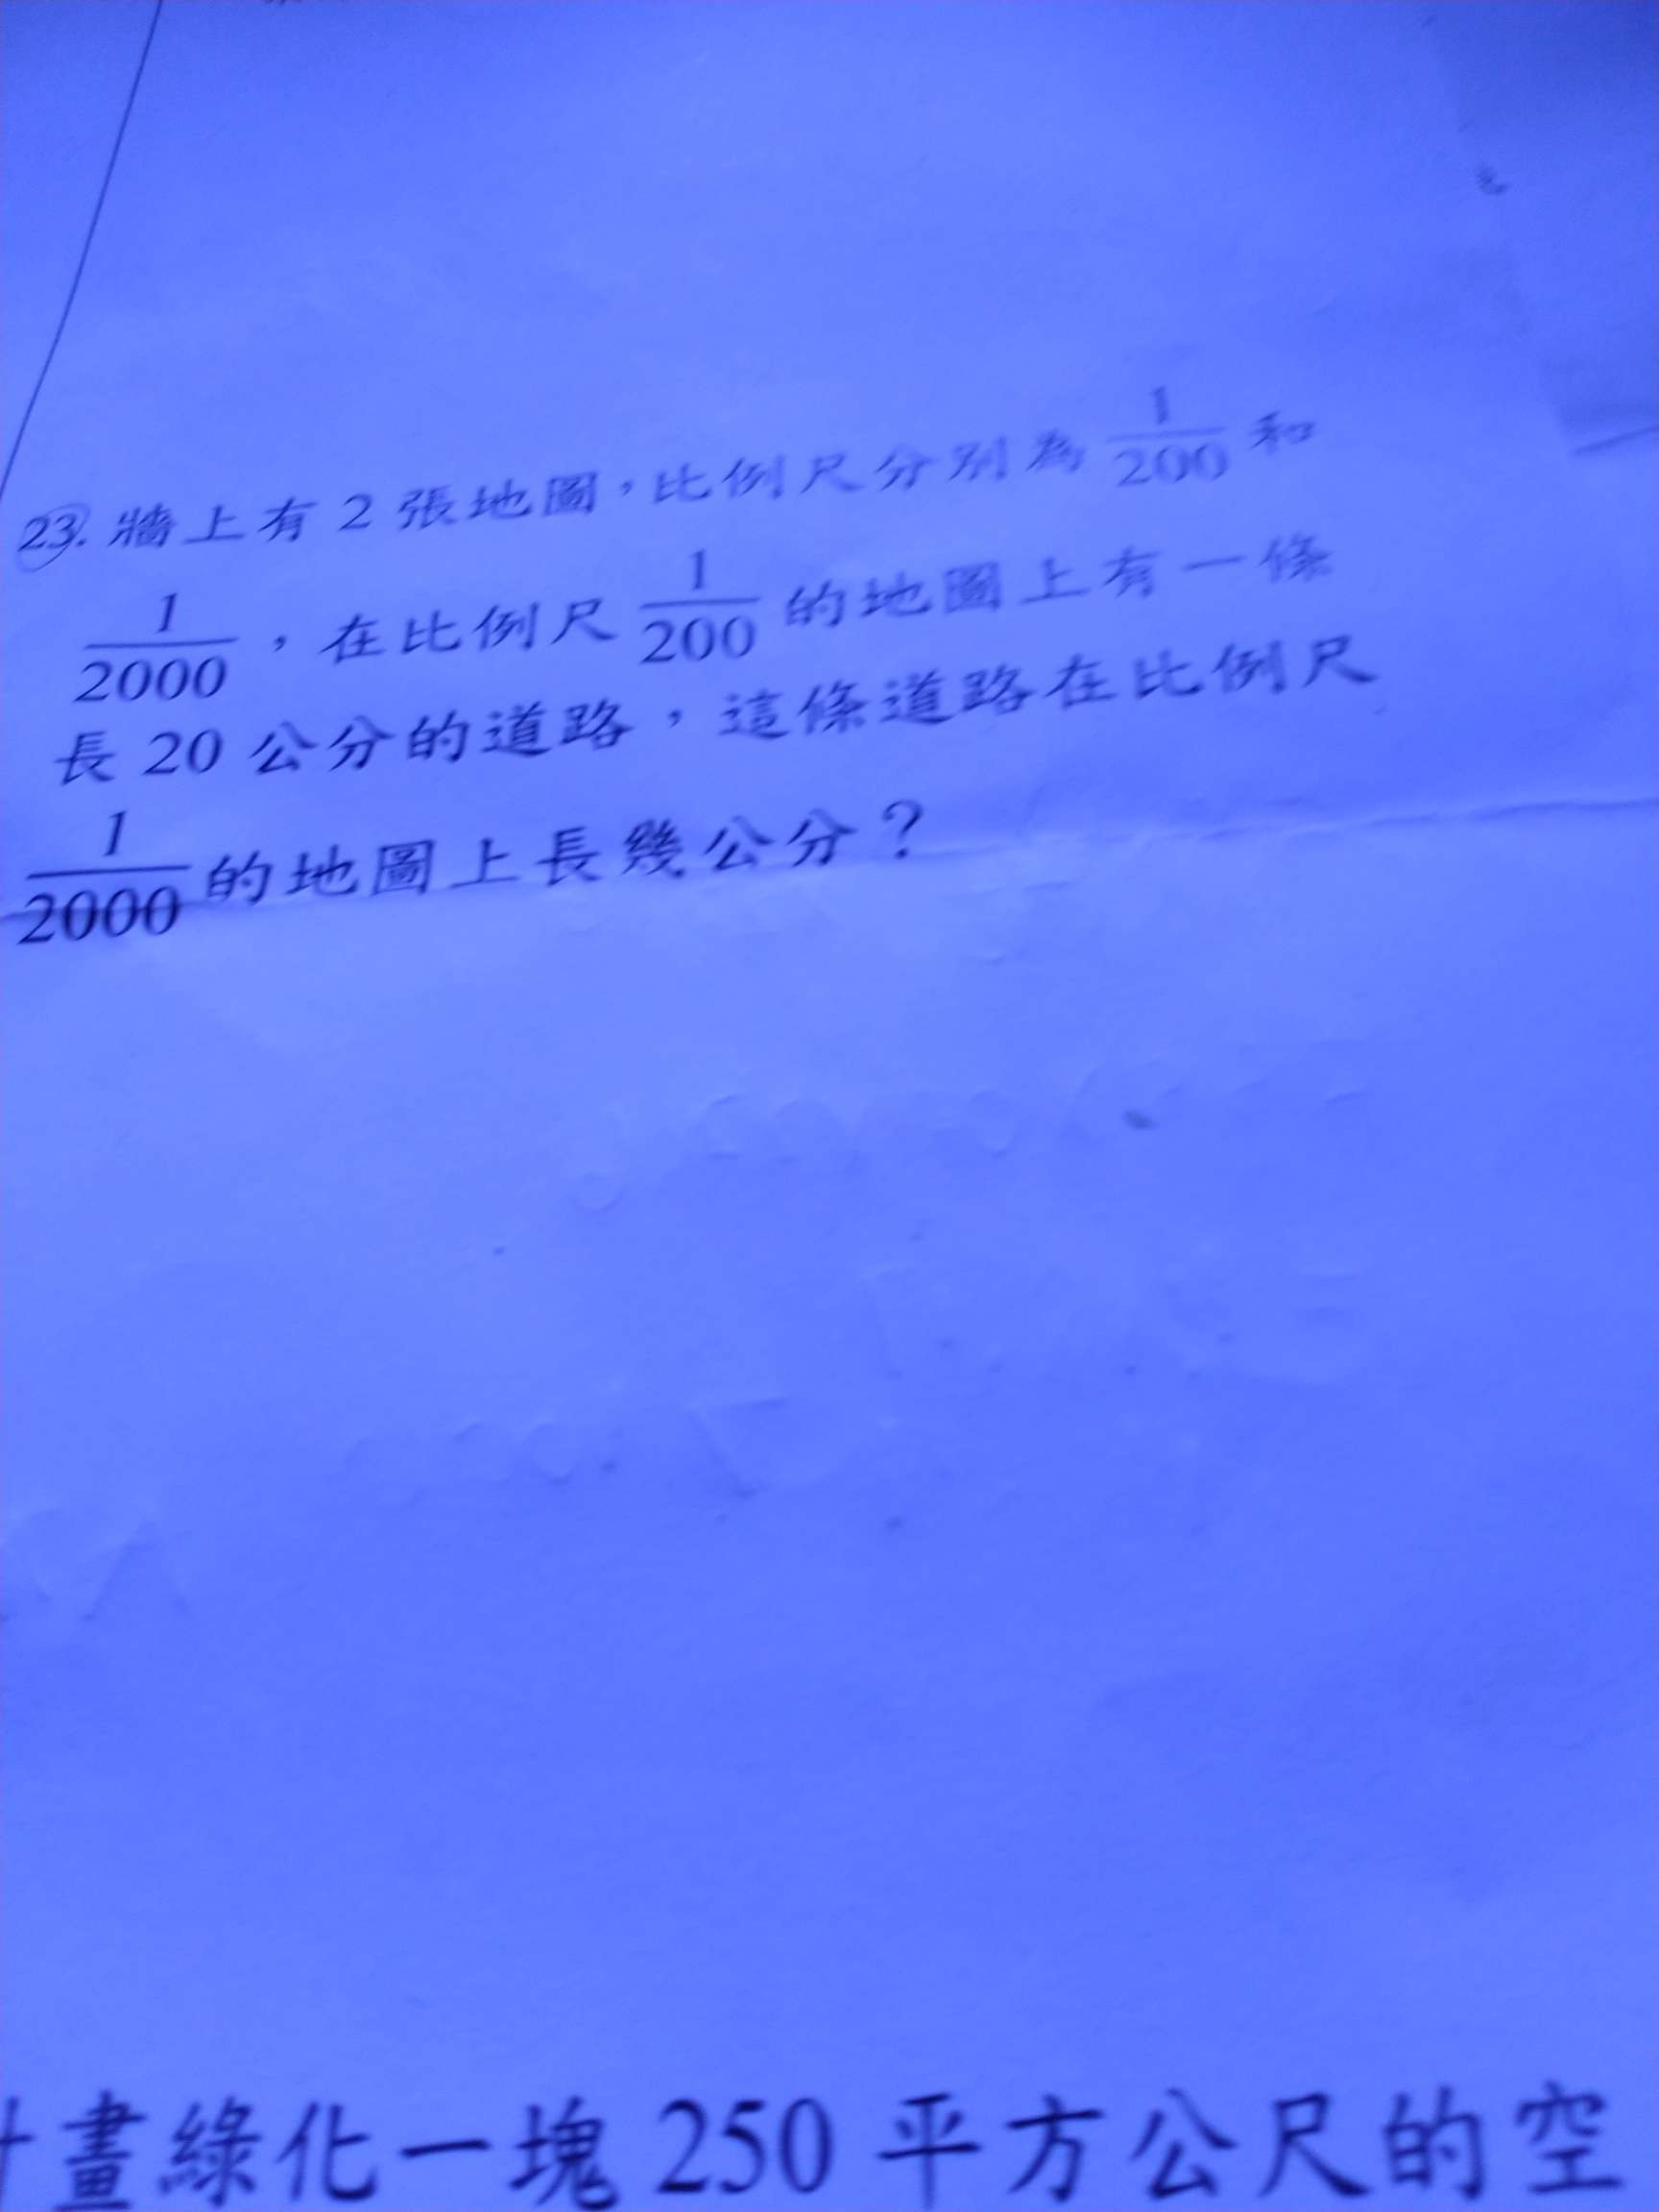 23. 牆上有 2 張地圖，比例尺分別為 1/200 和
1/2000，在比例尺 1/200 的地圖上有一條
長 20 公分的道路，這條道路在比例尺
1/2000 的地圖上長幾公分？
計畫綠化一塊 250 平方公尺的空